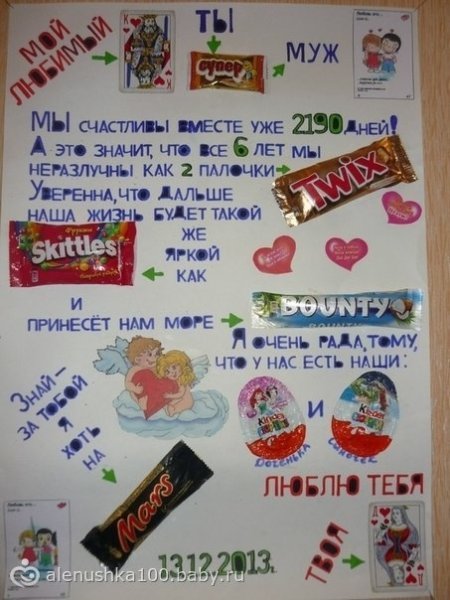 МОЙ ЛЮБИМЫЙ
K
ТЫ
супер
МУЖ
Любовь это...
МЫ СЧАСТЛИВЫ ВМЕСТЕ УЖЕ 2190 ДНЕЙ!
А ЭТО ЗНАЧИТ, ЧТО ВСЕ 6 ЛЕТ МЫ
НЕРАЗЛУЧНЫ КАК 2 ПАЛОЧКИ
TWIX
УВЕРЕННА, ЧТО ДАЛЬШЕ
НАША ЖИЗНЬ БУДЕТ ТАКОЙ
ЖЕ
ЯРКОЙ
КАК
Фрукты
Skittles
И
ПРИНЕСЁТ НАМ МОРЕ
BOUNTY
BOUNTY
Я ОЧЕНЬ РАДА, ТОМУ,
ЧТО У НАС ЕСТЬ НАШИ:
Kinder
СЮРПРИЗ
Доченька
И
Kinder
СЮРПРИЗ
Сыночек
ЗНАЙ –
ЗА ТОБОЙ
Я
ХОТЬ
НА
Mars
ЛЮБЛЮ ТЕБЯ
ТВОЯ
Любовь это...
13.12.2013г.
alenushka100.baby.ru